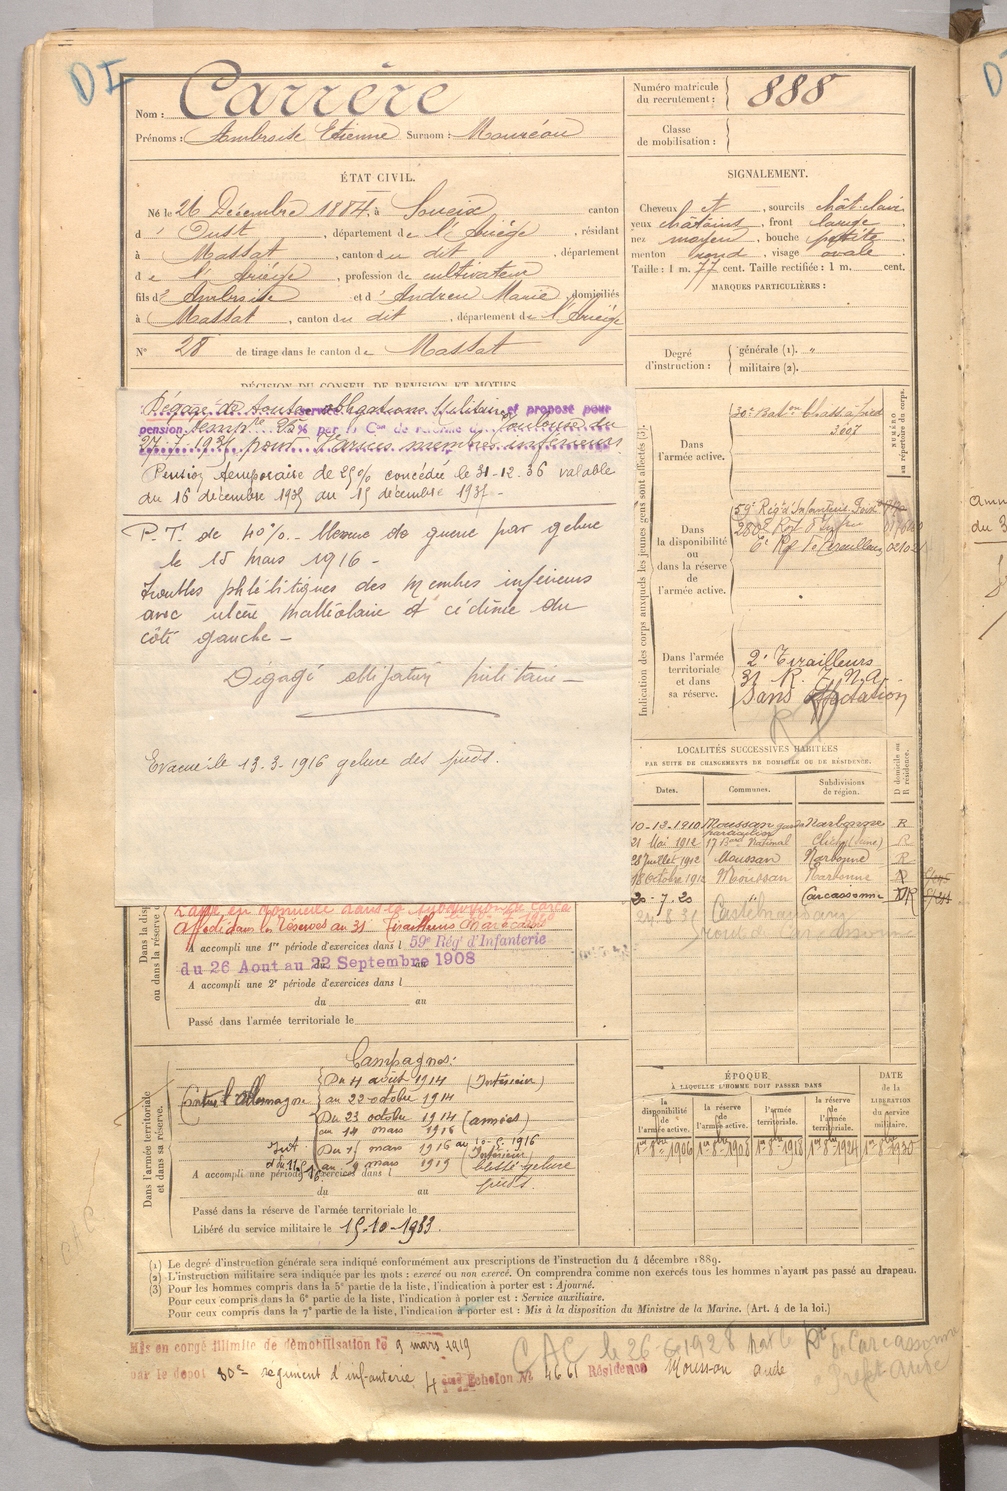 DI
Nom : Carrère
Prénoms : Ambroise Etienne Surnom : Mouréou
Numéro matricule
du recrutement : 888
Classe
de mobilisation :
ÉTAT CIVIL.
Né le 26 Décembre 1884, à Soueix canton
d' Oust, département de l'Ariège, résidant
à Massat, canton du dit, département
de l'Ariège, profession de cultivateur
fils d' Ambroise et d' Andreu Marie, domiciliés
à Massat, canton du dit, département de l'Ariège
N° 28 de tirage dans le canton de Massat
SIGNALEMENT.
Cheveux et, sourcils chât. clair
yeux châtains, front large
nez moyen, bouche petite
menton rond, visage ovale
Taille : 1 m. 77 cent. Taille rectifiée : 1 m. cent.
MARQUES PARTICULIÈRES :
Degré
d'instruction :
générale (1). "
militaire (2).
DÉCISION DU CONSEIL DE REVISION ET MOTIFS
Dégagé de toutes obligations Militaires et proposé pour
pension temp. 25% par la Con de réforme de Toulouse du
27-7-1937 pour Varices membres inférieurs
Pension temporaire de 25% concédée le 31-12-36 valable
du 16 décembre 1935 au 15 décembre 1937-
P.T. de 40%.- guerre par gelure
le 15 mars 1916 -
troubles phlébitiques des Membres inférieurs
avec ulcère malléolaire et oedème du
côté gauche -
Dégagé obligation militaire -
Evacué le 13.3-1916 gelure des pieds.
Indication des corps auxquels les jeunes gens sont affectés (3).
NUMÉRO
au répertoire du corps.
Dans
l'armée active.
30e Bat.on Chass. à pied
3607
Dans
la disponibilité
ou
dans la réserve
de
l'armée active.
59e Rég. d'Infanterie
280e Rgt d'Infrie
6e Rgt de Tirailleurs
Dans l'armée
territoriale
et dans
sa réserve.
2e Tirailleurs
31 R. T. N. A.
Sans affectation
LOCALITÉS SUCCESSIVES HABITÉES
PAR SUITE DE CHANGEMENTS DE DOMICILE OU DE RÉSIDENCE.
Dates. Communes. Subdivisions
de région.
D domicile ou
R résidence.
10-12-1910 Moussan garde particulier Narbonne R
21 Mai 1912 17 Bard National Clichy (Seine) R
28 Juillet 1912 Moussan Narbonne R
18 Octobre 1912 Moussan Narbonne R
20-7-20 " Carcassonne DR
24-8-31 Castelnaudary
route de Carcassonne
affecté dans les réserves au 31 Tirailleurs Marocains
A accompli une 1re période d'exercices dans l 59e Rég' d'Infanterie
du 26 Aout au 22 Septembre 1908
A accompli une 2e période d'exercices dans l
du au
Passé dans l'armée territoriale le
Dans l'armée territoriale
et dans sa réserve.
Campagnes :
Contre l'Allemagne
Du 4 août 1914 (Intérieur)
au 22 octobre 1914
Du 23 octobre 1914 (armées)
au 14 mars 1916
Du 15 mars 1916 au 10-5-1916
Intérieur
au 9 mars 1919
blessé gelure
pieds.
A accompli une période d'exercices dans l
du au
Passé dans la réserve de l'armée territoriale le
Libéré du service militaire le 15-10-1933.
ÉPOQUE
A LAQUELLE L'HOMME DOIT PASSER DANS
DATE
de la
LIBÉRATION
du service
militaire.
la
disponibilité
de
l'armée active.
la réserve
de
l'armée active.
l'armée
territoriale.
la réserve
de
l'armée
territoriale.
1er 8bre 1906 1er 8bre 1908 1er 8bre 1918 1er 8bre 1924 1er 8bre 1930
(1) Le degré d'instruction générale sera indiqué conformément aux prescriptions de l'instruction du 4 décembre 1889.
(2) L'instruction militaire sera indiquée par les mots : exercé ou non exercé. On comprendra comme non exercés tous les hommes n'ayant pas passé au drapeau.
(3) Pour les hommes compris dans la 5e partie de la liste, l'indication à porter est : Ajourné.
Pour ceux compris dans la 6e partie de la liste, l'indication à porter est : Service auxiliaire.
Pour ceux compris dans la 7e partie de la liste, l'indication à porter est : Mis à la disposition du Ministre de la Marine. (Art. 4 de la loi.)
Mis en congé illimité de démobilisation le 9 mars 1919
par le dépôt 80me regiment d'infanterie 4me Echelon N° 4661 Résidence Moussan aude
CAC le 26-6-1928 par le
de Carcassonne
Préfet Aude